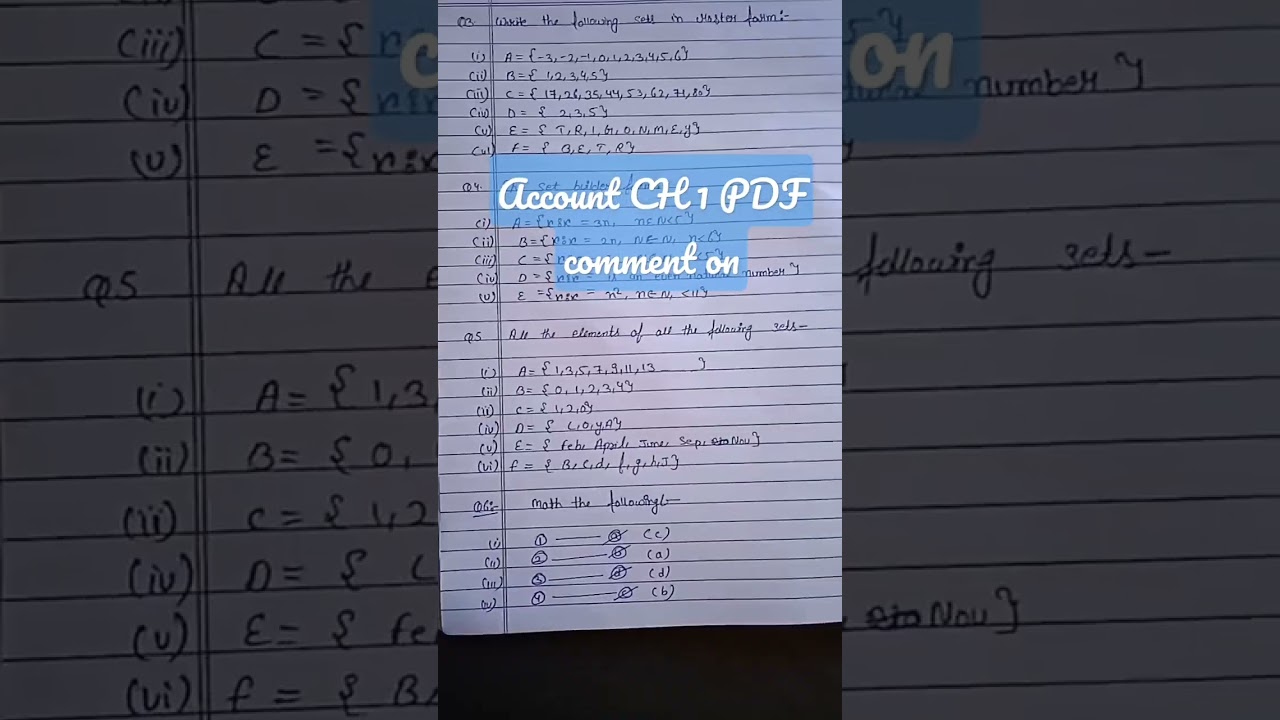 Q3 Write the following sets in roster form:-
(i) A = {-3,-2,-1,0,1,2,3,4,5,6}
(ii) B = { 1,2,3,4,5}
(iii) C = { 17,26,35,44,53,62,71,80}
(iv) D = { 2,3,5}
(v) E = { T,R,I,G,O,N,M,E,y}
(vi) F = { B,E,T,R}
Q4. set builder
Account CH 1 PDF
(i) A = {x:x = 3n, n∈N<5}
(ii) B = {x:x = 2n, N∈N, n<6}
(iii) C = {
comment on
(iv) D = {x:x = number}
(v) E = {x:x = n², n∈N, <11}
Q5 All the elements of all the following sets-
(i) A = {1,3,5,7,9,11,13 }
(ii) B = {0,1,2,3,4}
(ii) C = {1,2,0}
(iv) D = { L,O,y,A}
(v) E = { Feb, April, June, Sep, Nov}
(vi) f = { B,C,d, f,g,h,J}
Q6:- Math the following:-
(i) 1 (c)
(ii) 2 (a)
(iii) 3 (d)
(iv) 4 (b)